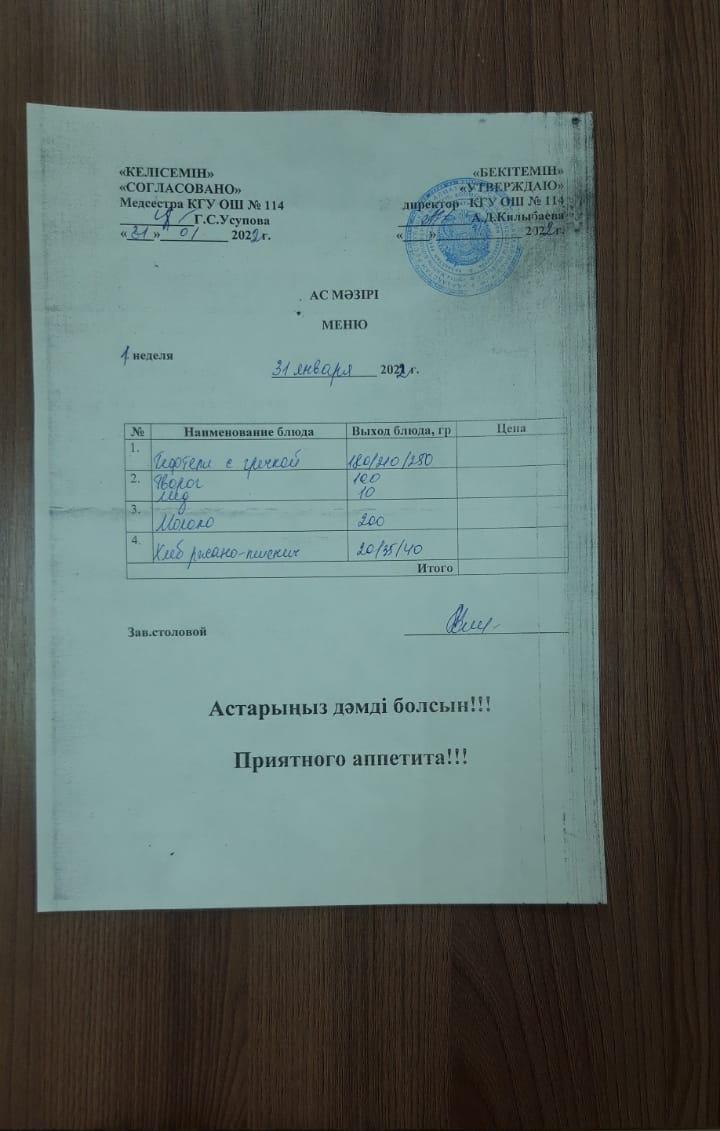 «КЕЛІСЕМІН»
«СОГЛАСОВАНО»
Медсестра КГУ ОШ № 114
Г.С.Усупова
«31» 01 2022г.
«БЕКІТЕМІН»
«УТВЕРЖДАЮ»
директор КГУ ОШ № 114
А.Д.Килыбаева
« » 2022г.
АС МӘЗІРІ
МЕНЮ
1 неделя
31 января 2022г.
№ Наименование блюда Выход блюда, гр Цена
1. Тефтели с гречкой 180/210/280
2. Творог 100
мёд 10
3. Молоко 200
4. Хлеб ржано-пшенич 20/35/40
Итого
Зав.столовой
Астарыңыз дәмді болсын!!!
Приятного аппетита!!!